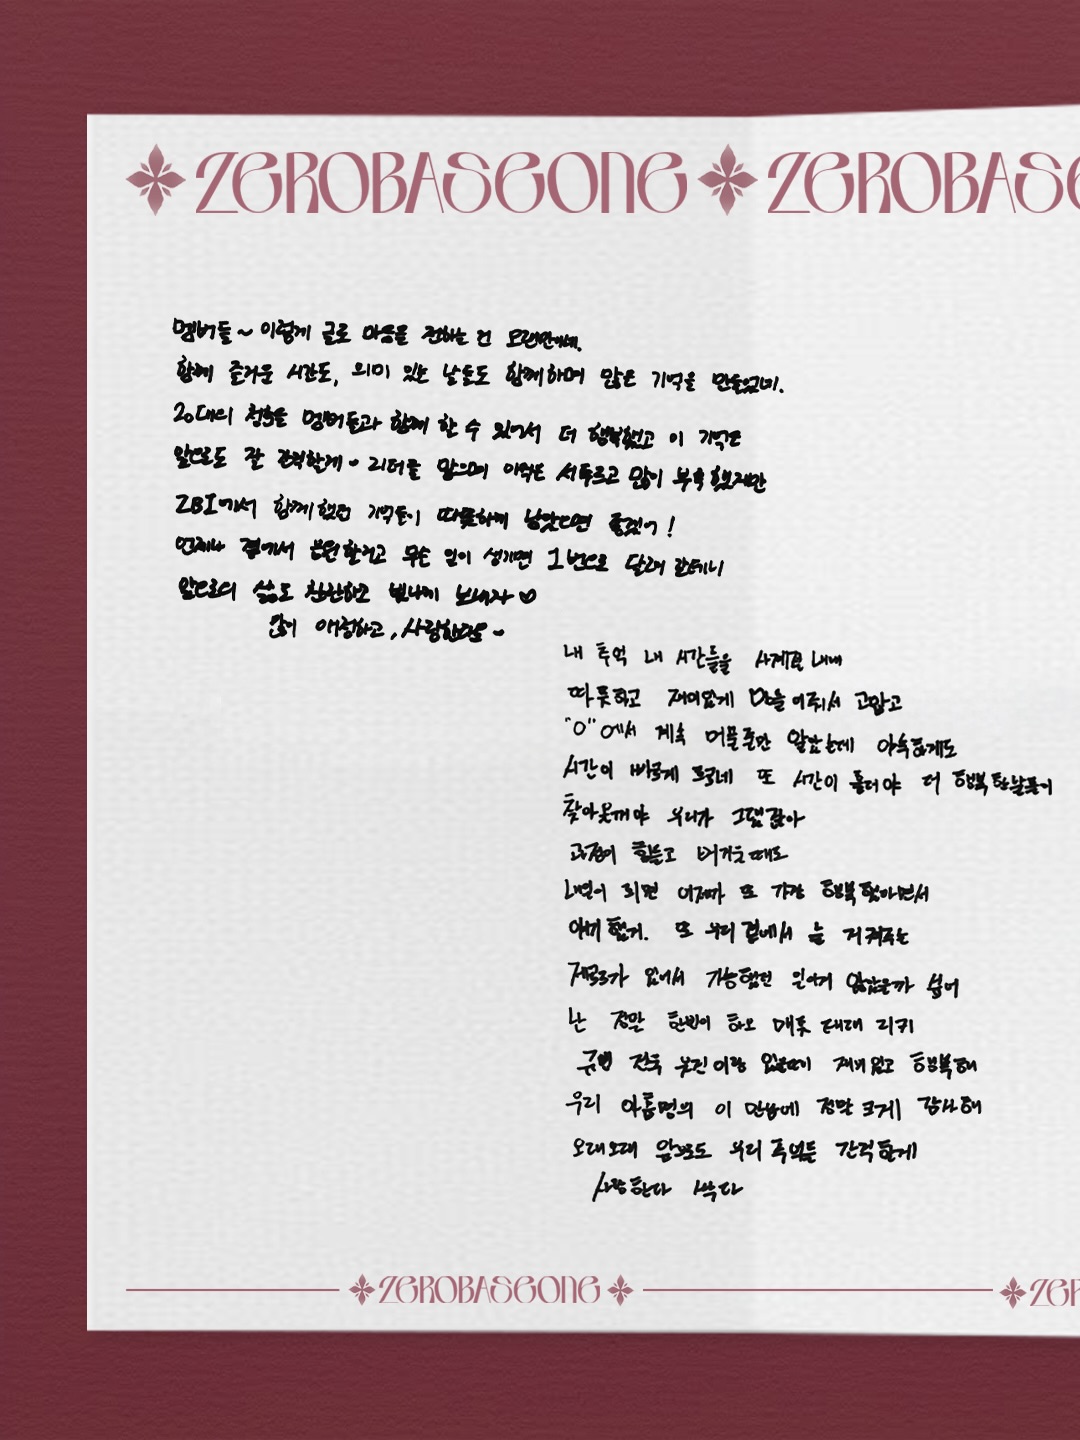 ZEROBASEONE ZEROBASE
멤버들~ 이렇게 글로 마음을 전하는 건 오랜만이네.
함께 즐거운 시간도, 의미 있는 날들도 함께하며 많은 기억을 만들었네.
20대의 청춘을 멤버들과 함께 할 수 있어서 더 행복했고 이 기억은
앞으로도 잘 간직할게~ 리더를 맡으며 이래저래 서투르고 많이 부족했지만
ZB1에서 함께 했던 기억들이 따뜻하게 남았으면 좋겠어!
언제나 곁에서 응원할거고 무슨 일이 생기면 1번으로 달려 갈테니
앞으로의 삶도 찬란하고 빛나게 보내자♡
많이 애정하고, 사랑한다~
내 추억 내 시간들을 사계절 내내
따뜻하고 재미있게 만들어줘서 고맙고
"0"에서 계속 머물줄만 알았는데 야속하게도
시간이 빠르게 흐르네 또 시간이 흘러야 더 행복한 날들이
찾아올거야 우리가 그랬잖아
과정이 힘들고 버거울 때도
내일이 되면 어제가 또 가장 행복했다면서
얘기했지. 또 우리 곁에서 늘 지켜주는
제로즈가 있어서 가능했던 일이지 않았을까 싶어
난 정말 한빈이 하오 매튜 태래 리키
규빈 건욱 유진이랑 있을때 재미있고 행복해
우리 아홉명의 이 만남에 정말 크게 감사해
오래오래 앞으로도 우리 추억들 간직할게
사랑한다 싸다
ZEROBASEONE